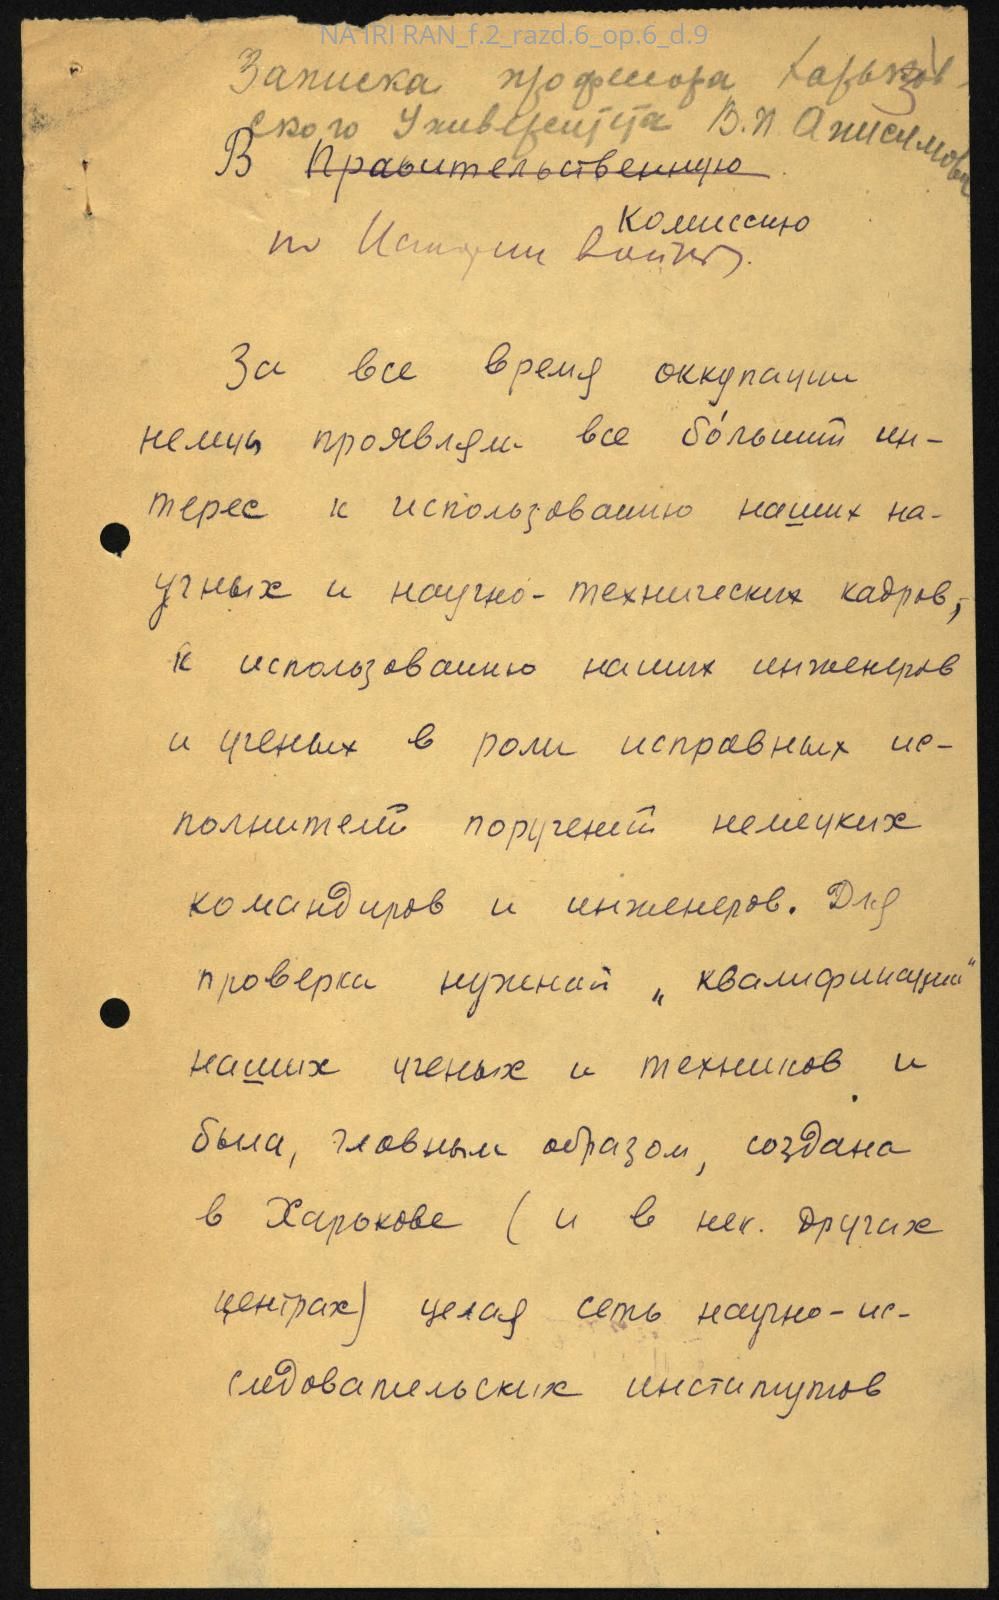 NA IRI RAN_f.2_razd.6_op.6_d.9
Записка профессора Харьков-
ского Университета В.П. Анисимова
В Правительственную
Комиссию
по Истории войны.
За все время оккупации
немцы проявляли все бо́льший ин-
терес к использованию наших на-
учных и научно-технических кадров,
к использованию наших инженеров
и ученых в роли исправных ис-
полнителей поручений немецких
командиров и инженеров. Для
проверки нужной „квалификации"
наших ученых и техников и
была, главным образом, создана
в Харькове (и в нек. других
центрах) целая сеть научно-ис-
следовательских институтов